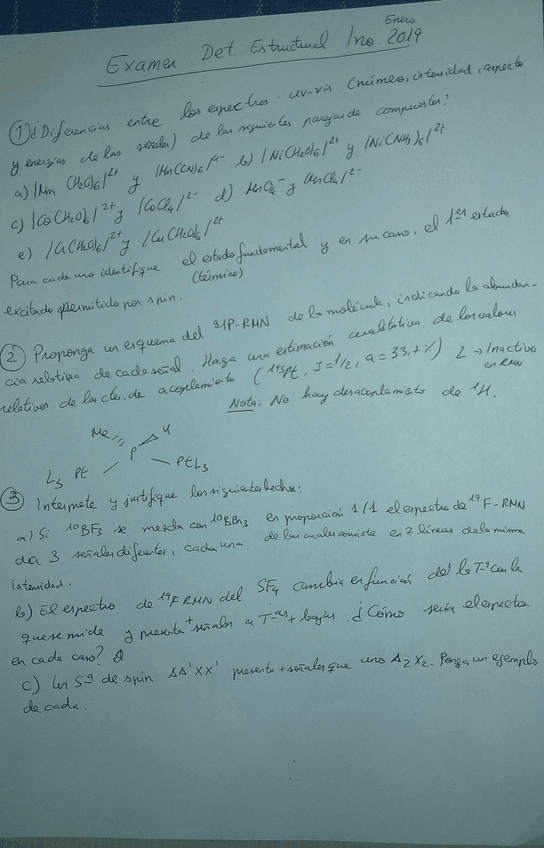 Examen Det. Estructural Ino. Enero 2019
① ¿Diferencias entre los espectros uv-vis (número, intensidad, aspecto
y energías de las señales) de las siguientes parejas de compuestos?
a) |Mn (H2O)6|2+ y |Mn(CN)6|4- b) |Ni(H2O)6|2+ y |Ni(NH3)6|2+
c) |Co(H2O)6|2+ y |CoCl4|2- d) MnO4- y |MnCl4|2-
e) |Cr(H2O)6|2+ y |Cu(H2O)6|2+
Para cada uno identifique el estado fundamental y en su caso, el 1er estado
(término)
excitado permitido por spin.
② Proponga un esquema del 31P-RMN de la molécula, indicando la abundan-
cia relativa de cada señal. Haga una estimación cualitativa de los valores
relativos de la cte. de acoplamiento (195Pt, I=1/2, a=33,7%) L → Inactivo
en RMN
Nota: No hay desacoplamiento de 1H.
Me H
P
L3 Pt PtL3
③ Interprete y justifique los siguientes hechos:
a) Si 10BF3 se mezcla con 10BBr3 en proporción 1/1 el espectro de 19F-RMN
da 3 señales diferentes, cada una de las cuales consiste en 7 líneas de la misma
intensidad.
b) El espectro de 19F RMN del SF4 cambia en función de la Tª con la
que se mide y presenta + señales a Tas + bajas. ¿Cómo sería el espectro
en cada caso?
c) Un Sª de spin AA'XX' presenta + señales que uno A2X2. Ponga un ejemplo
de cada.